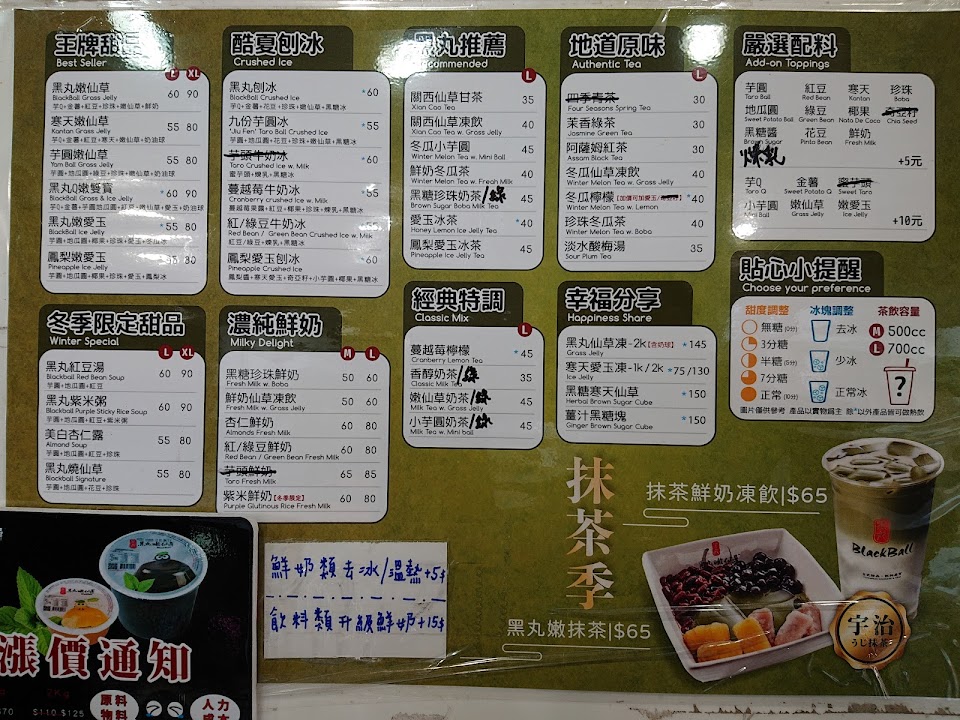 王牌甜品
Best Seller
L XL
黑丸嫩仙草 60 90
BlackBall Grass Jelly
芋Q+金薯+紅豆+珍珠+嫩仙草+鮮奶
寒天嫩仙草 55 80
Kanten Grass Jelly
芋圓嫩仙草 55 80
Yam Ball Grass Jelly
芋圓+地瓜圓+綠豆+嫩仙草+奶油球
黑丸嫩雙寶 *60 90
BlackBall Grass & Ice Jelly
黑丸嫩愛玉 *55 80
BlackBall Ice Jelly
芋圓+地瓜圓+椰果+珍珠+愛玉+冬瓜冰
鳳梨嫩愛玉
Pineapple Ice Jelly
芋圓+地瓜圓+椰果+珍珠+愛玉+鳳梨冰
酷夏刨冰
Crushed Ice
黑丸刨冰 *60
BlackBall Crushed Ice
芋Q+金薯+花豆+珍珠+嫩仙草+黑糖冰
九份芋圓冰 *55
'Jiu Fen' Taro Ball Crushed Ice
芋頭牛奶冰 *60
Taro Crushed Ice w. Milk
蜜芋頭+煉乳+黑糖冰
蔓越莓牛奶冰 *55
Cranberry crushed Ice w. Milk
蔓越莓果露+紅豆+椰果+珍珠+煉乳+黑糖冰
紅/綠豆牛奶冰 *50
Red Bean / Green Bean Crushed Ice w. Milk
紅豆/綠豆+煉乳+黑糖冰
鳳梨愛玉刨冰 *60
Pineapple Crushed Ice
鳳梨醬+寒天愛玉+奇亞籽+小芋圓+椰果+黑糖冰
黑丸推薦
L
關西仙草甘茶 35
Xian Cao Tea
關西仙草凍飲 40
Xian Cao Tea w. Grass Jelly
冬瓜小芋圓 45
Winter Melon Tea w. Mini Ball
鮮奶冬瓜茶 40
Winter Melon Tea w. Fresh Milk
黑糖珍珠奶茶/綠 45
Brown Sugar Boba Milk Tea
愛玉冰茶 *40
Honey Lemon Ice Jelly Tea
鳳梨愛玉冰茶 *45
Pineapple Ice Jelly Tea
地道原味
Authentic Tea
L
四季青茶 30
Four Seasons Spring Tea
茉香綠茶 30
Jasmine Green Tea
阿薩姆紅茶 30
Assam Black Tea
冬瓜仙草凍飲 40
Winter Melon Tea w. Grass Jelly
冬瓜檸檬 *40
Winter Melon Tea w. Lemon
珍珠冬瓜茶 40
Winter Melon Tea w. Boba
淡水酸梅湯 35
Sour Plum Tea
嚴選配料
Add-on Toppings
芋圓 紅豆 寒天 珍珠
Taro Ball Red Bean Kanten Boba
地瓜圓 綠豆 椰果 奇亞籽
Sweet Potato Ball Green Bean Nata De Coco Chia Seed
黑糖醬 花豆 鮮奶
Brown Sugar Pinto Bean Fresh Milk
煉乳
+5元
芋Q 金薯 蜜芋頭
Taro Q Sweet Potato Q Sweet Taro
小芋圓 嫩仙草 嫩愛玉
Mini Ball Grass Jelly Ice Jelly
+10元
冬季限定甜品
Winter Special
L XL
黑丸紅豆湯 60 90
Blackball Red Bean Soup
芋圓+地瓜圓+紅豆
黑丸紫米粥 60 90
Blackball Purple Sticky Rice Soup
芋圓+地瓜圓+紅豆+紫米粥
美白杏仁露 55 80
Almond Soup
芋圓+地瓜圓+紅豆+珍珠
黑丸燒仙草 55 80
Blackball Signature
芋圓+地瓜圓+花豆+珍珠
濃純鮮奶
Milky Delight
M L
黑糖珍珠鮮奶 50 60
Fresh Milk w. Boba
鮮奶仙草凍飲 50 60
Fresh Milk w. Grass Jelly
杏仁鮮奶 60 80
Almonds Fresh Milk
紅/綠豆鮮奶 60 80
Red Bean / Green Bean Fresh Milk
芋頭鮮奶 65 85
Taro Fresh Milk
紫米鮮奶【冬季限定】 60 80
Purple Glutinous Rice Fresh Milk
經典特調
Classic Mix
L
蔓越莓檸檬 *45
Cranberry Lemon Tea
香醇奶茶/綠 35
Classic Milk Tea
嫩仙草奶茶/綠 45
Milk Tea w. Grass Jelly
小芋圓奶茶/綠 45
Milk Tea w. Mini ball
幸福分享
Happiness Share
黑丸仙草凍-2k【含奶球】 *145
Grass Jelly
寒天愛玉凍-1k/2k *75/130
Ice Jelly
黑糖寒天仙草 *150
Herbal Brown Sugar Cube
薑汁黑糖塊 *150
Ginger Brown Sugar Cube
貼心小提醒
Choose your preference
甜度調整 冰塊調整 茶飲容量
無糖(0分) 去冰 M 500cc
3分糖 L 700cc
半糖(5分) 少冰
7分糖
正常(10分) 正常冰 ?
圖片僅供參考 產品以實物為主 除*以外產品皆可做熱飲
抹茶季
抹茶鮮奶凍飲|$65
黑丸嫩抹茶|$65
BlackBall
宇治
うじ抹茶
鮮奶類去冰/溫熱+5$
飲料類升級鮮奶+15$
漲價通知
2Kg
$110 $125
原料
物料
人力
成本